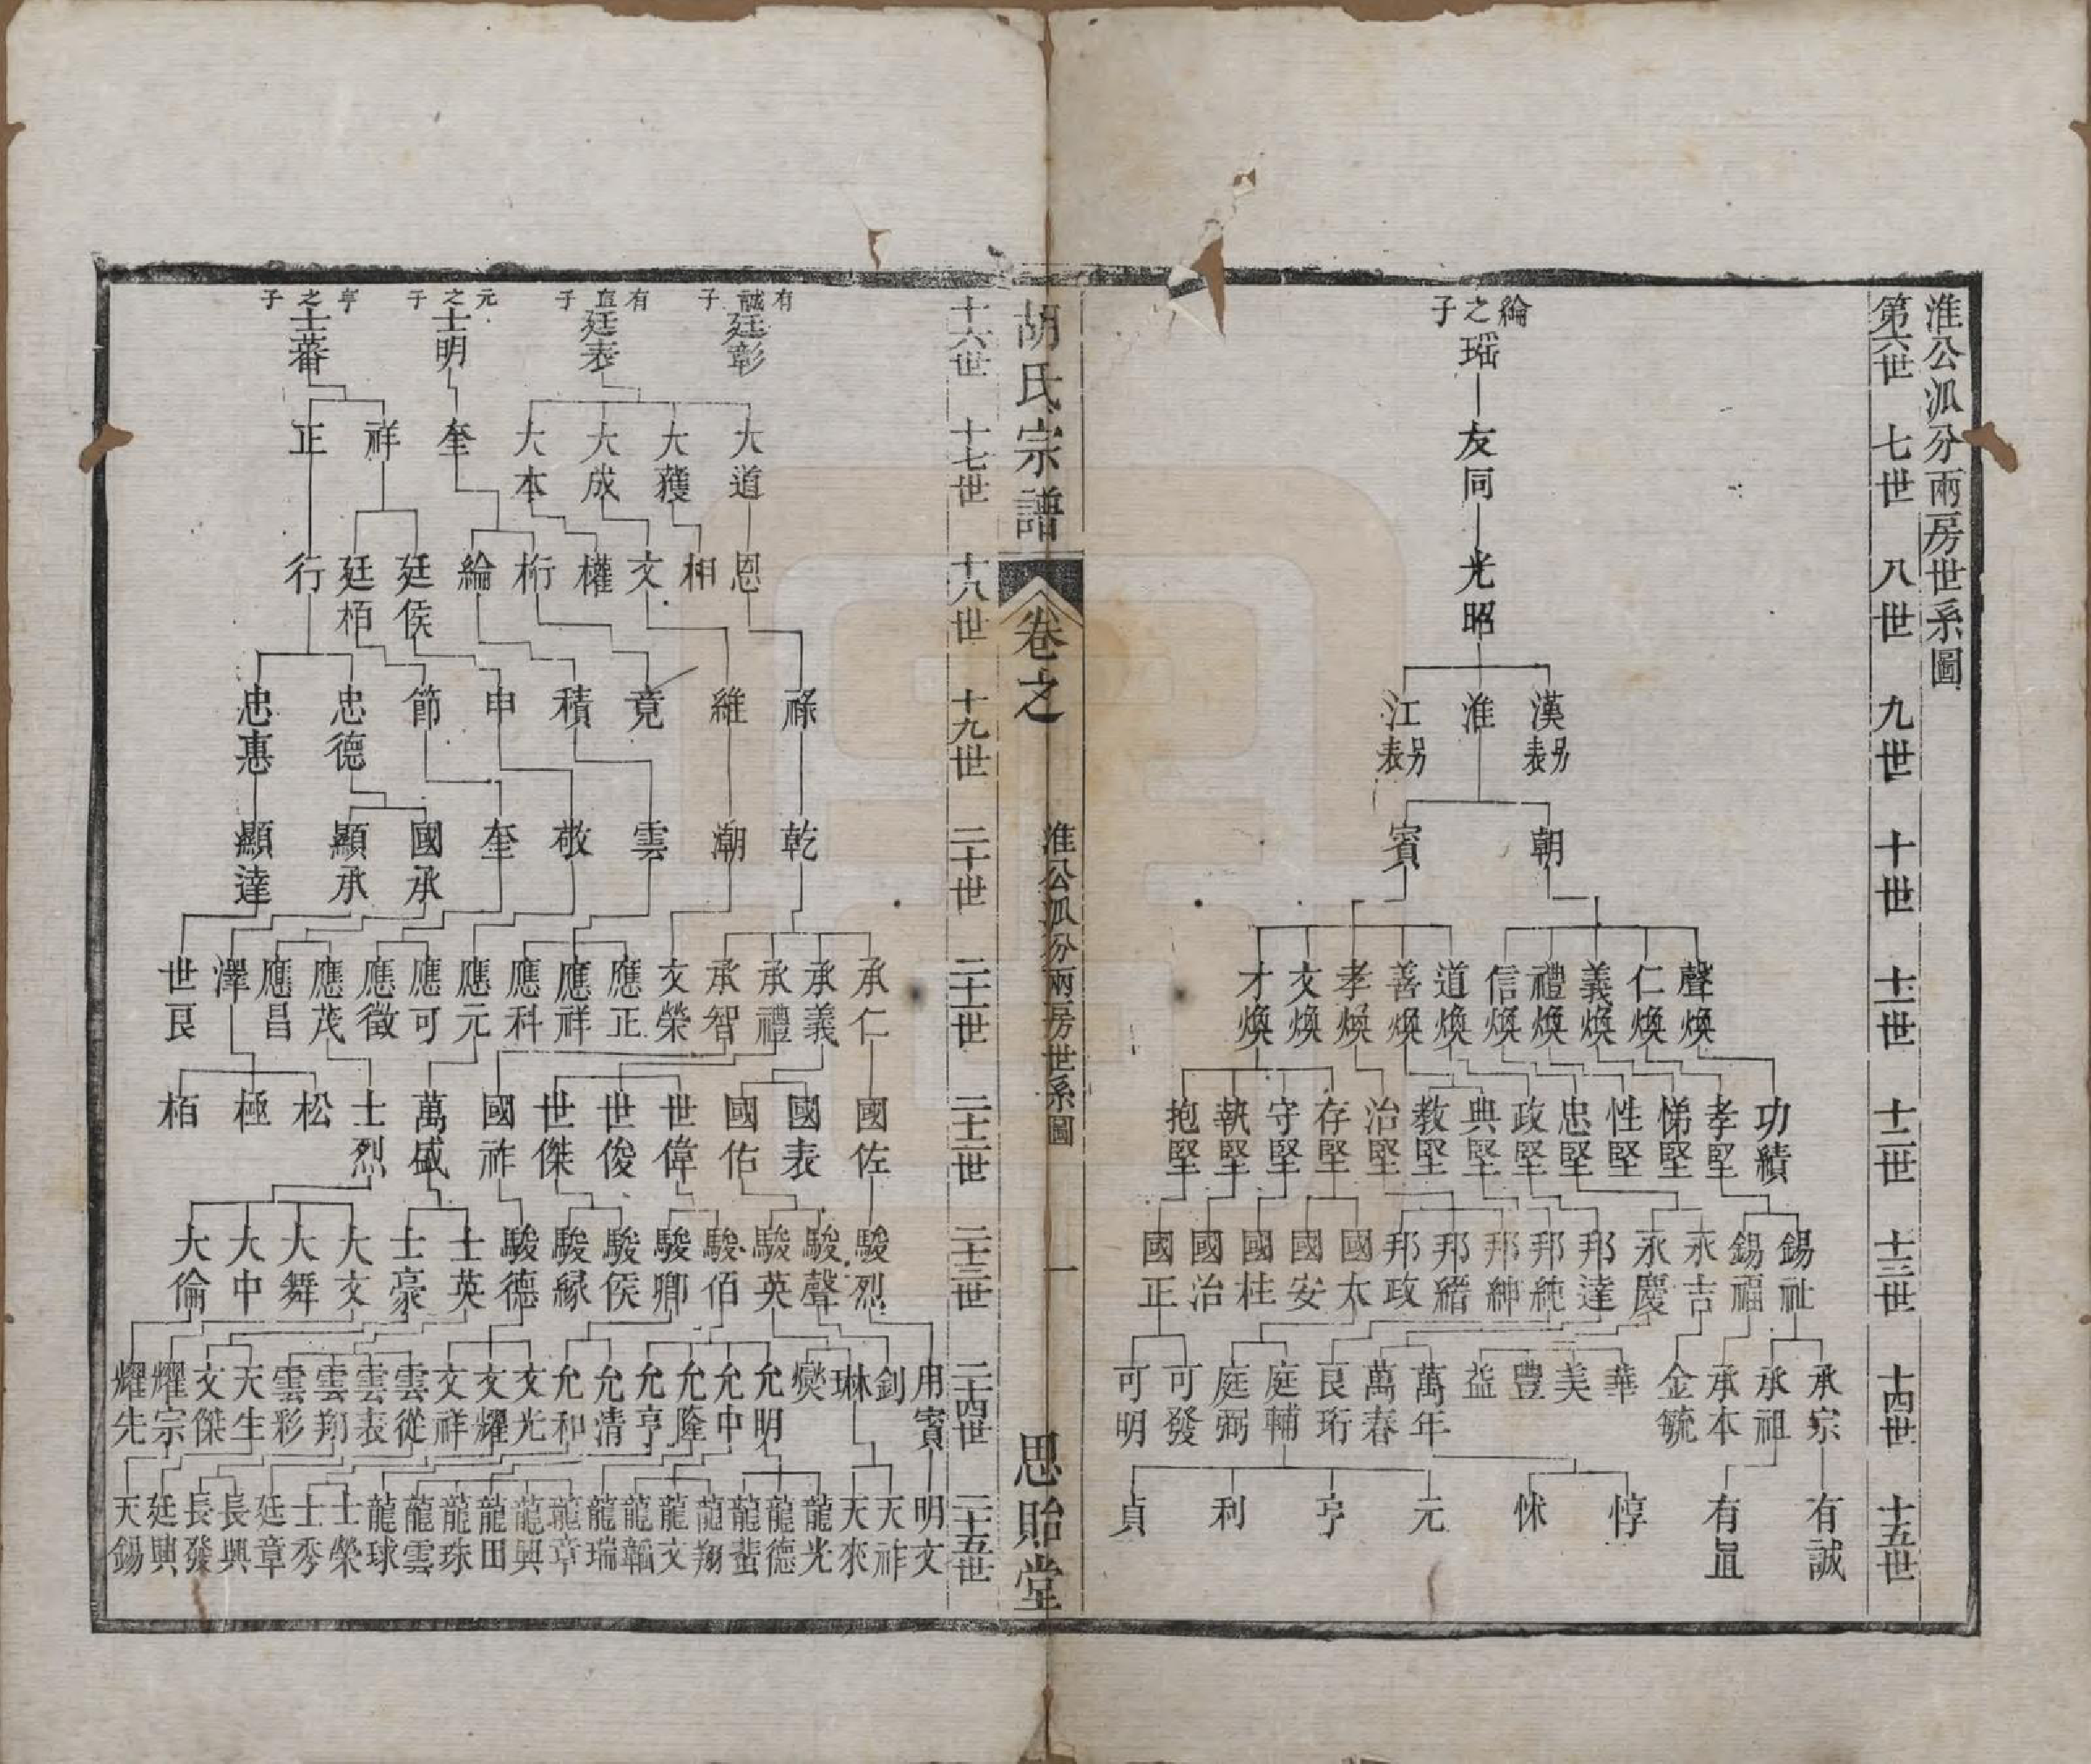 淮公派分兩房世系圖
第六世 七世 八世 九世 十世 十一世 十二世 十三世 十四世 十五世
綸之子
瑶 友同 光昭
漢 另表
淮
江 另表
朝 賓
聲煥 仁煥 義煥 禮煥 信煥 道煥 善煥 孝煥 文煥 才煥
功績 孝堅 悌堅 性堅 忠堅 政堅 典堅 教堅 治堅 存堅 守堅 執堅 抱堅
錫祉 錫福 永吉 永慶 邦達 邦純 邦紳 邦緒 邦政 國太 國安 國桂 國治 國正
承宗 承祖 承本 金毓 華 美 豐 益 萬年 萬春 艮珩 庭輔 庭弼 可發 可明
有誠 有直 惇 怵 元 亨 利 貞
胡氏宗譜 卷之 淮公派分兩房世系圖 一 思貽堂
十六世 十七世 十八世 十九世 二十世 二十一世 二十二世 二十三世 二十四世 二十五世
有誠子 廷彰
有直子 廷表
元之子 士明
亨之子 士蕃
大道 大獲 大成 大本 奎 祥 正
恩 相 文 權 桁 綸 廷侯 廷栢 行
祿 維 竟 積 申 節 忠德 忠惠
乾 潮 雲 敬 奎 國承 顯承 顯達
承仁 承義 承禮 承智 文榮 應正 應祥 應科 應元 應可 應徵 應茂 應昌 澤 世艮
國佐 國表 國佑 世偉 世俊 世傑 國祚 萬盛 士烈 松 極 栢
駿烈 駿聲 駿英 駿佰 駿卿 駿侯 駿緣 駿德 士英 士豪 大文 大舞 大中 大倫
用賓 釗 琳 燮 允明 允中 允隆 允亨 允清 允和 文光 文耀 文祥 雲從 雲表 雲翔 雲彩 天生 文傑 耀宗 耀先
明文 天祚 天來 龍光 龍德 龍蜚 龍翔 龍文 龍韜 龍瑞 龍章 龍興 龍田 龍珠 龍雲 龍球 士榮 士秀 廷章 長興 長發 廷興 天錫